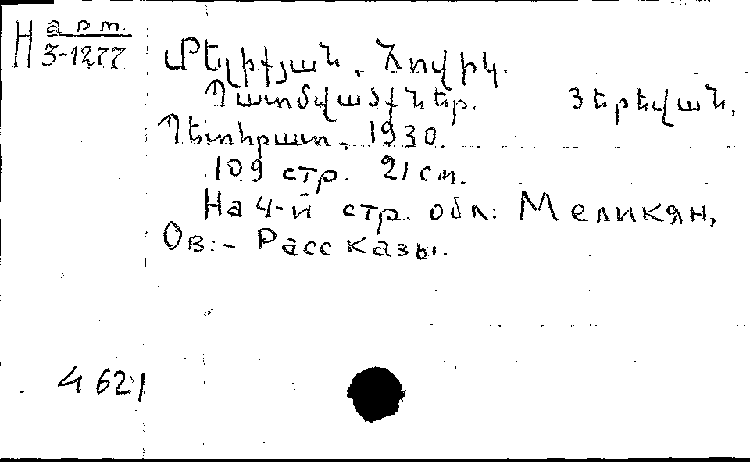 Н арм.
3-1277
Մելիքյան, Հովիկ.
Պատմվածքներ. Յերեվան,
Պետհրատ, 1930.
109 стр. 21 см.
На 4-й стр. обл.: Меликян,
Ов.:- Рассказы.
4621